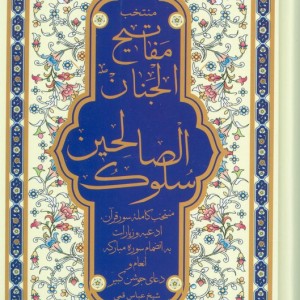 منتخب
مفاتیح
الجنان
الصالحین
سلوک
منتخب کامله سور قرآن
ادعیه و زیارات
به انضمام سوره مبارکه
انعام و
دعای جوشن کبیر
شیخ عباس قمی